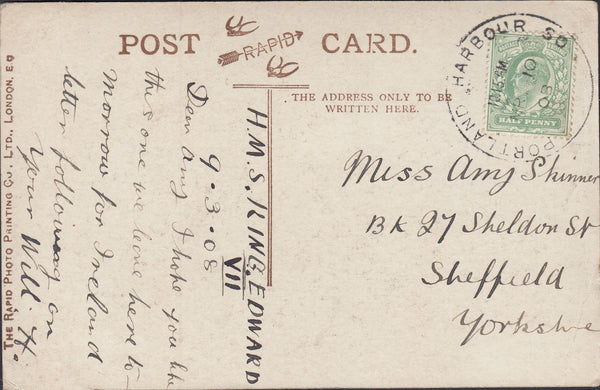 POST CARD.
RAPID
THE ADDRESS ONLY TO BE
WRITTEN HERE.
PORTLAND HARBOUR SO
10.15 AM
10
08
HALF PENNY
H.M.S. KING. EDWARD
VII
9.3.08
Dear Amy I hope you like
this one we leave here to-
Morrow for Ireland
letter following on
Your Will. H.
Miss Amy Skinner
BK 27 Sheldon St
Sheffield
Yorkshire
THE RAPID PHOTO PRINTING CO., LTD., LONDON, E.C